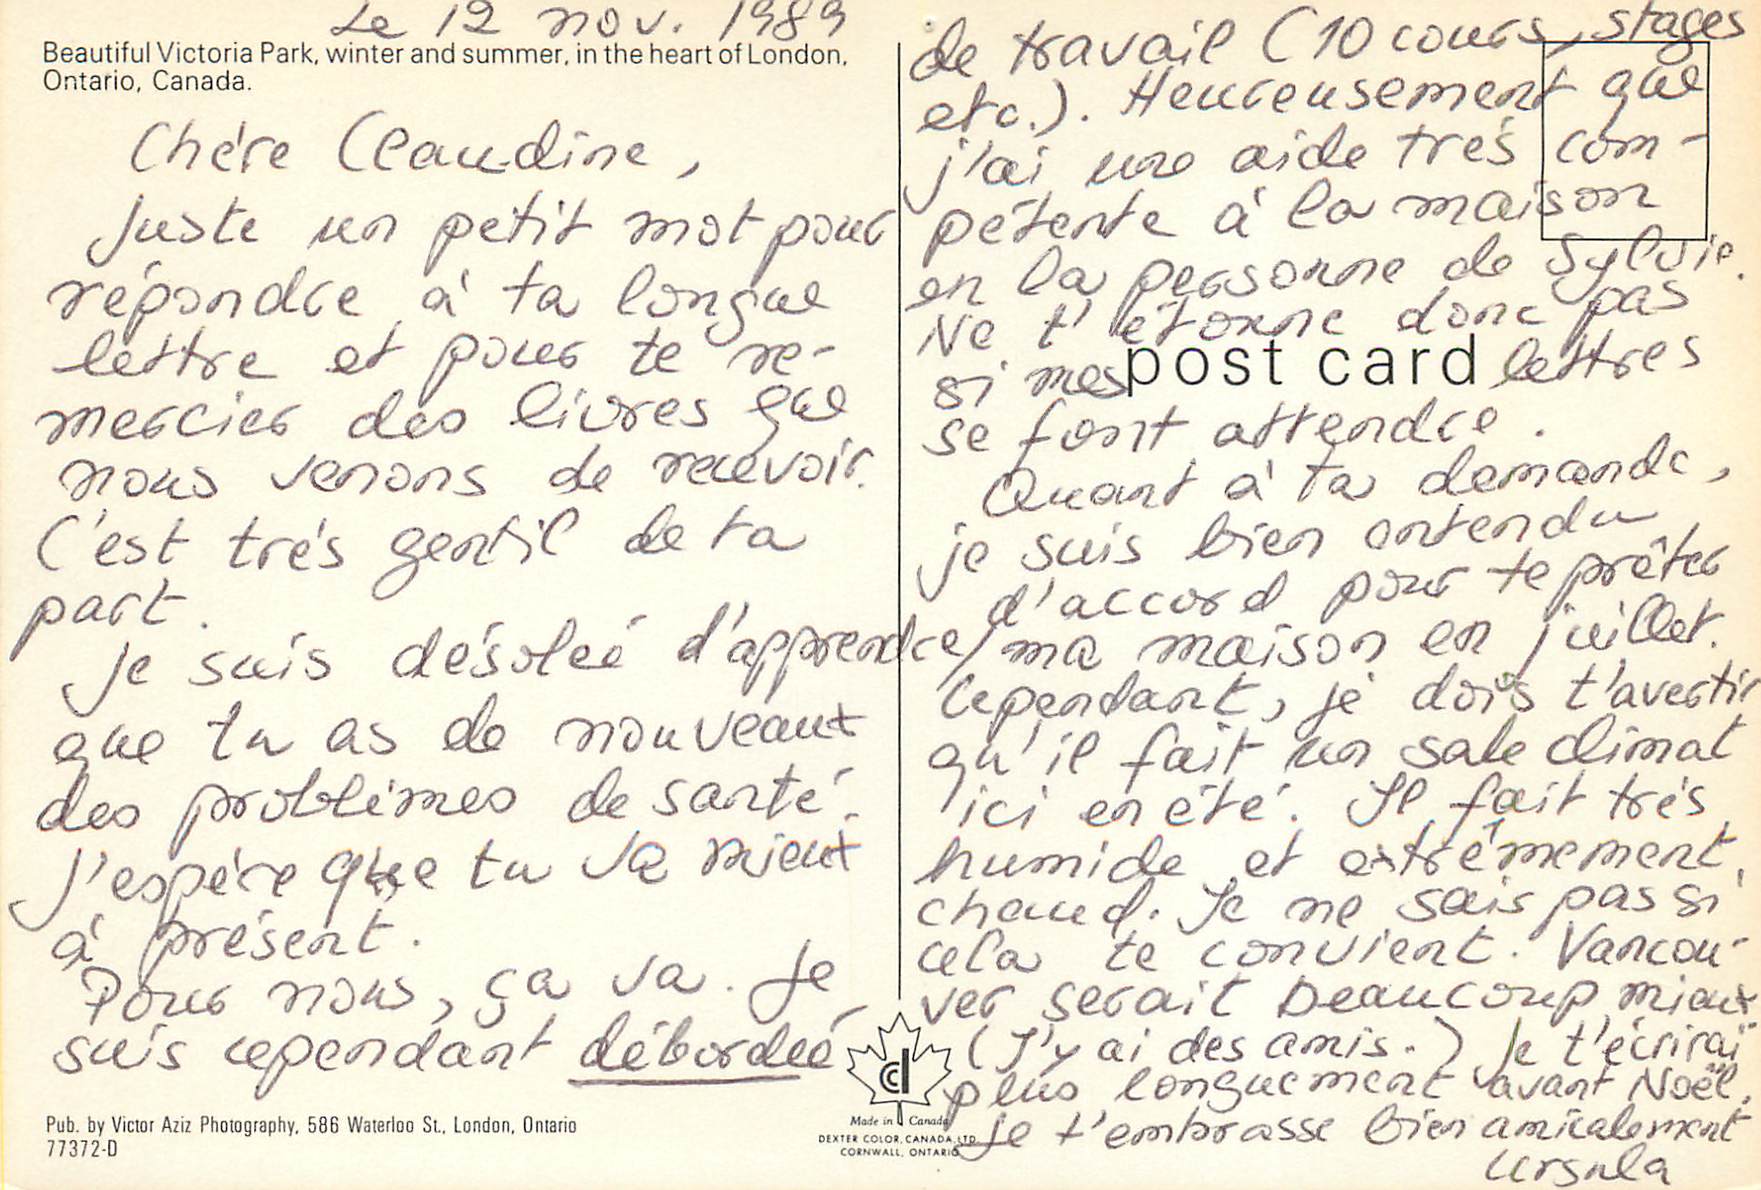 Le 12 nov. 1989
Beautiful Victoria Park, winter and summer, in the heart of London,
Ontario, Canada.
Chère Claudine,
Juste un petit mot pour
répondre à ta longue
lettre et pour te re-
mercier des livres que
nous venons de recevoir.
C'est très gentil de ta
part.
Je suis désolée d'apprendre
que tu as de nouveaux
des problèmes de santé.
J'espère que tu va mieux
à présent.
Pour nous, ça va. Je
suis cependant débordée
Pub. by Victor Aziz Photography, 586 Waterloo St., London, Ontario
77372-D
de travail (10 cours, stages
etc.). Heureusement que
j'ai une aide très com-
pétente à la maison
en la personne de Sylvie.
Ne t'étonne donc pas
si mes lettres
post card
se font attendre.
Quant à ta demande,
je suis bien entendu
d'accord pour te prêter
ma maison en juillet.
Cependant, je dois t'avertir
qu'il fait un sale climat
ici en été. Il fait très
humide et extrêmement
chaud. Je ne sais pas si
cela te convient. Vancou-
ver serait beaucoup mieux
(J'y ai des amis.) Je t'écrirai
plus longuement avant Noël.
Je t'embrasse bien amicalement
Ursula
Made in Canada
DEXTER COLOR, CANADA, LTD.
CORNWALL, ONTARIO